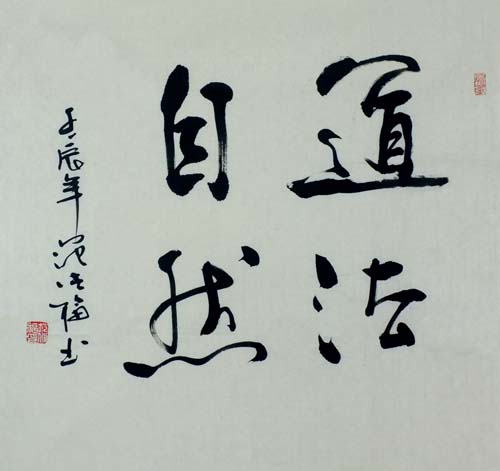 道法
自然
壬辰年范洪福书